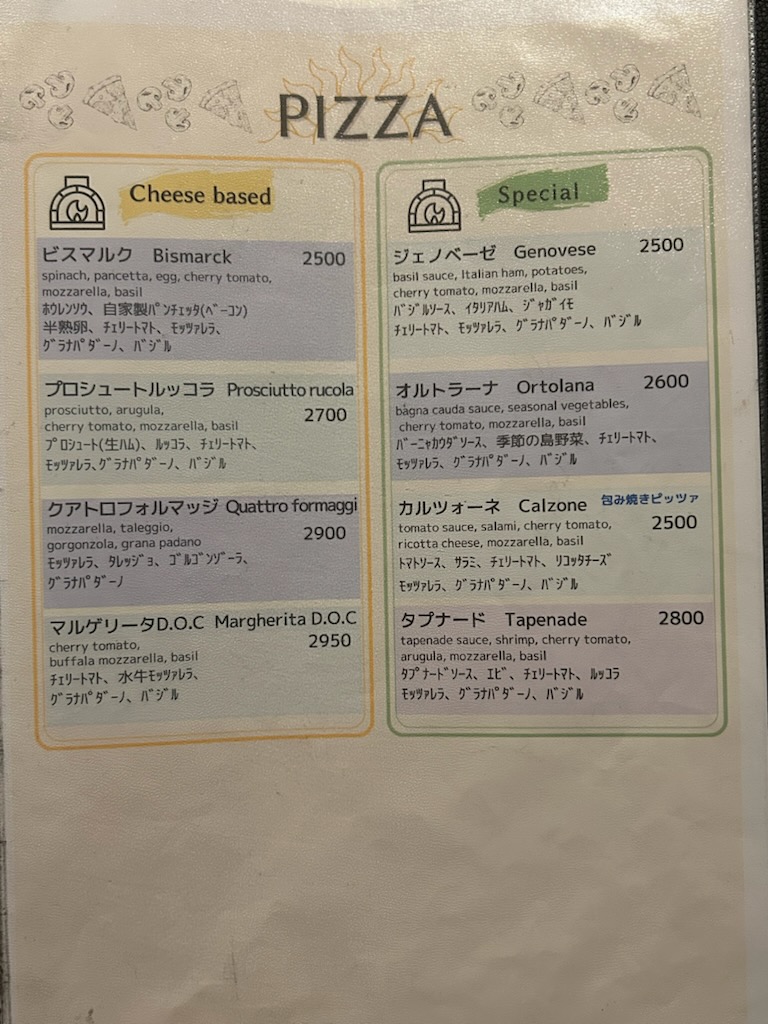 PIZZA
Cheese based
ビスマルク Bismarck 2500
spinach, pancetta, egg, cherry tomato,
mozzarella, basil
ﾎｳﾚﾝｿｳ、自家製ﾊﾟﾝﾁｪｯﾀ(ﾍﾞｰｺﾝ)
半熟卵、ﾁｪﾘｰﾄﾏﾄ、ﾓｯﾂｧﾚﾗ、
ｸﾞﾗﾅﾊﾟﾀﾞｰﾉ、ﾊﾞｼﾞﾙ
プロシュートルッコラ Prosciutto rucola
prosciutto, arugula, 2700
cherry tomato, mozzarella, basil
ﾌﾟﾛｼｭｰﾄ(生ﾊﾑ)、ﾙｯｺﾗ、ﾁｪﾘｰﾄﾏﾄ、
ﾓｯﾂｧﾚﾗ、ｸﾞﾗﾅﾊﾟﾀﾞｰﾉ、ﾊﾞｼﾞﾙ
クアトロフォルマッジ Quattro formaggi
mozzarella, taleggio, 2900
gorgonzola, grana padano
ﾓｯﾂｧﾚﾗ、ﾀﾚｯｼﾞｮ、ｺﾞﾙｺﾞﾝｿﾞｰﾗ、
ｸﾞﾗﾅﾊﾟﾀﾞｰﾉ
マルゲリータD.O.C Margherita D.O.C
cherry tomato, 2950
buffala mozzarella, basil
ﾁｪﾘｰﾄﾏﾄ、水牛ﾓｯﾂｧﾚﾗ、
ｸﾞﾗﾅﾊﾟﾀﾞｰﾉ、ﾊﾞｼﾞﾙ
Special
ジェノベーゼ Genovese 2500
basil sauce, Italian ham, potatoes,
cherry tomato, mozzarella, basil
ﾊﾞｼﾞﾙｿｰｽ、ｲﾀﾘｱﾊﾑ、ｼﾞｬｶﾞｲﾓ
ﾁｪﾘｰﾄﾏﾄ、ﾓｯﾂｧﾚﾗ、ｸﾞﾗﾅﾊﾟﾀﾞｰﾉ、ﾊﾞｼﾞﾙ
オルトラーナ Ortolana 2600
bågna cauda sauce, seasonal vegetables,
cherry tomato, mozzarella, basil
ﾊﾞｰﾆｬｶｳﾀﾞｿｰｽ、季節の島野菜、ﾁｪﾘｰﾄﾏﾄ、
ﾓｯﾂｧﾚﾗ、ｸﾞﾗﾅﾊﾟﾀﾞｰﾉ、ﾊﾞｼﾞﾙ
カルツォーネ Calzone 包み焼きピッツァ
tomato sauce, salami, cherry tomato, 2500
ricotta cheese, mozzarella, basil
ﾄﾏﾄｿｰｽ、ｻﾗﾐ、ﾁｪﾘｰﾄﾏﾄ、ﾘｺｯﾀﾁｰｽﾞ
ﾓｯﾂｧﾚﾗ、ｸﾞﾗﾅﾊﾟﾀﾞｰﾉ、ﾊﾞｼﾞﾙ
タプナード Tapenade 2800
tapenade sauce, shrimp, cherry tomato,
arugula, mozzarella, basil
ﾀﾌﾟﾅｰﾄﾞｿｰｽ、ｴﾋﾞ、ﾁｪﾘｰﾄﾏﾄ、ﾙｯｺﾗ
ﾓｯﾂｧﾚﾗ、ｸﾞﾗﾅﾊﾟﾀﾞｰﾉ、ﾊﾞｼﾞﾙ